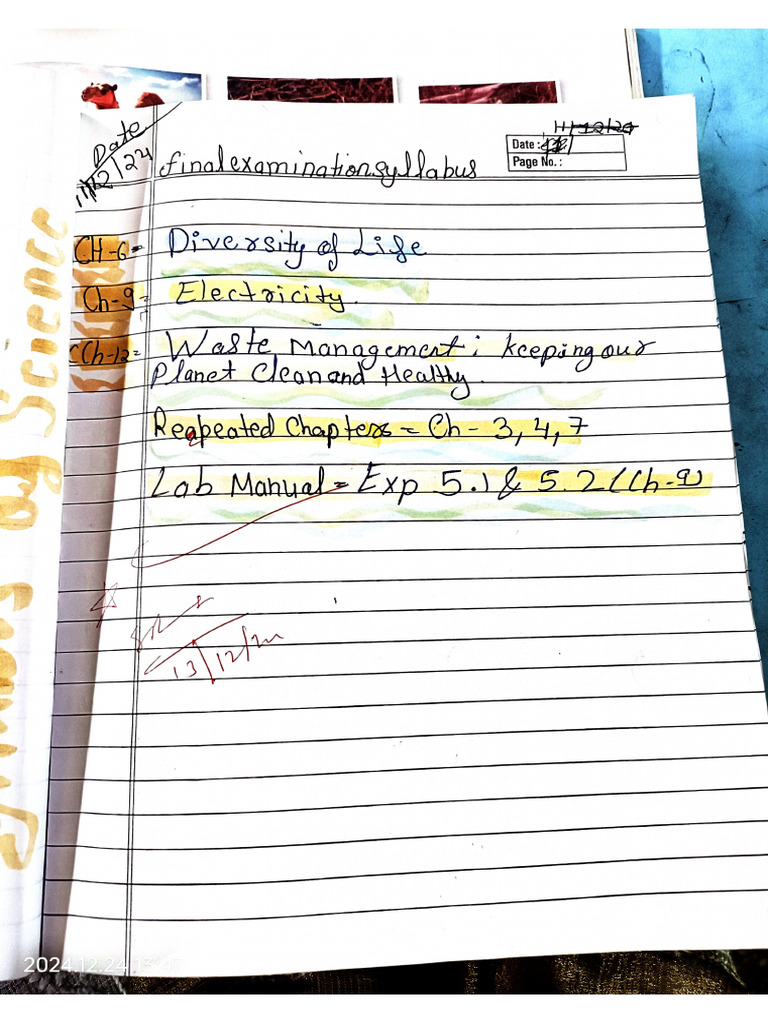 Date
11/12/24
11/12/24
Date:
Page No.:
final examination syllabus
CH-6= Diversity of Life
Ch-9= Electricity.
Ch-12= Waste Management; keeping our
Planet Clean and Healthy.
Reapeated Chapters = Ch - 3, 4, 7
Lab Manual = Exp 5.1 & 5.2 (Ch-9)
13/12/24
Science
2024.12.24 13:47